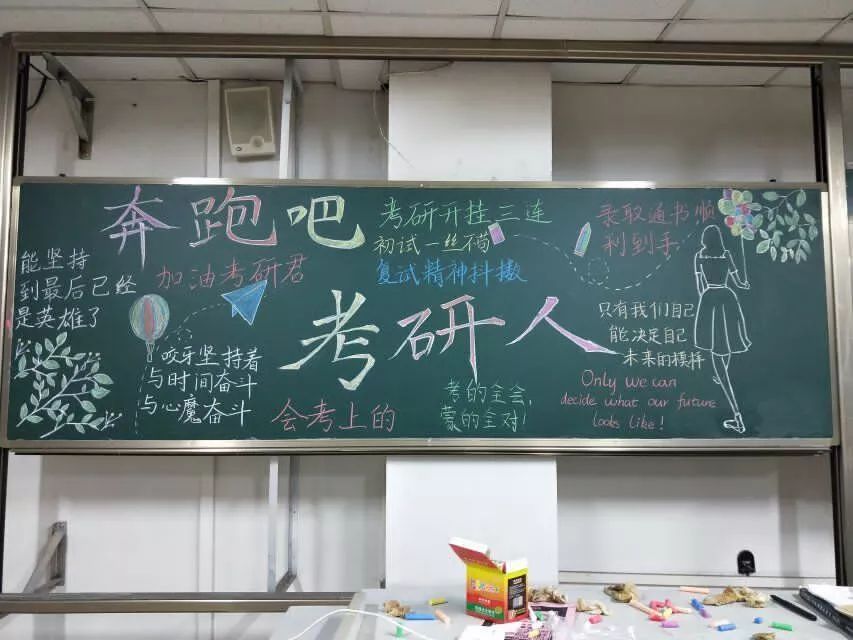 奔跑吧
考研人
考研开挂三连
初试一丝不苟
复试精神抖擞
录取通书顺
利到手
能坚持
到最后已经
是英雄了
加油考研君
咬牙坚持着
与时间奋斗
与心魔奋斗
会考上的
考的全会,
蒙的全对!
只有我们自己
能决定自己
未来的模样
Only we can
decide what our future
looks like!